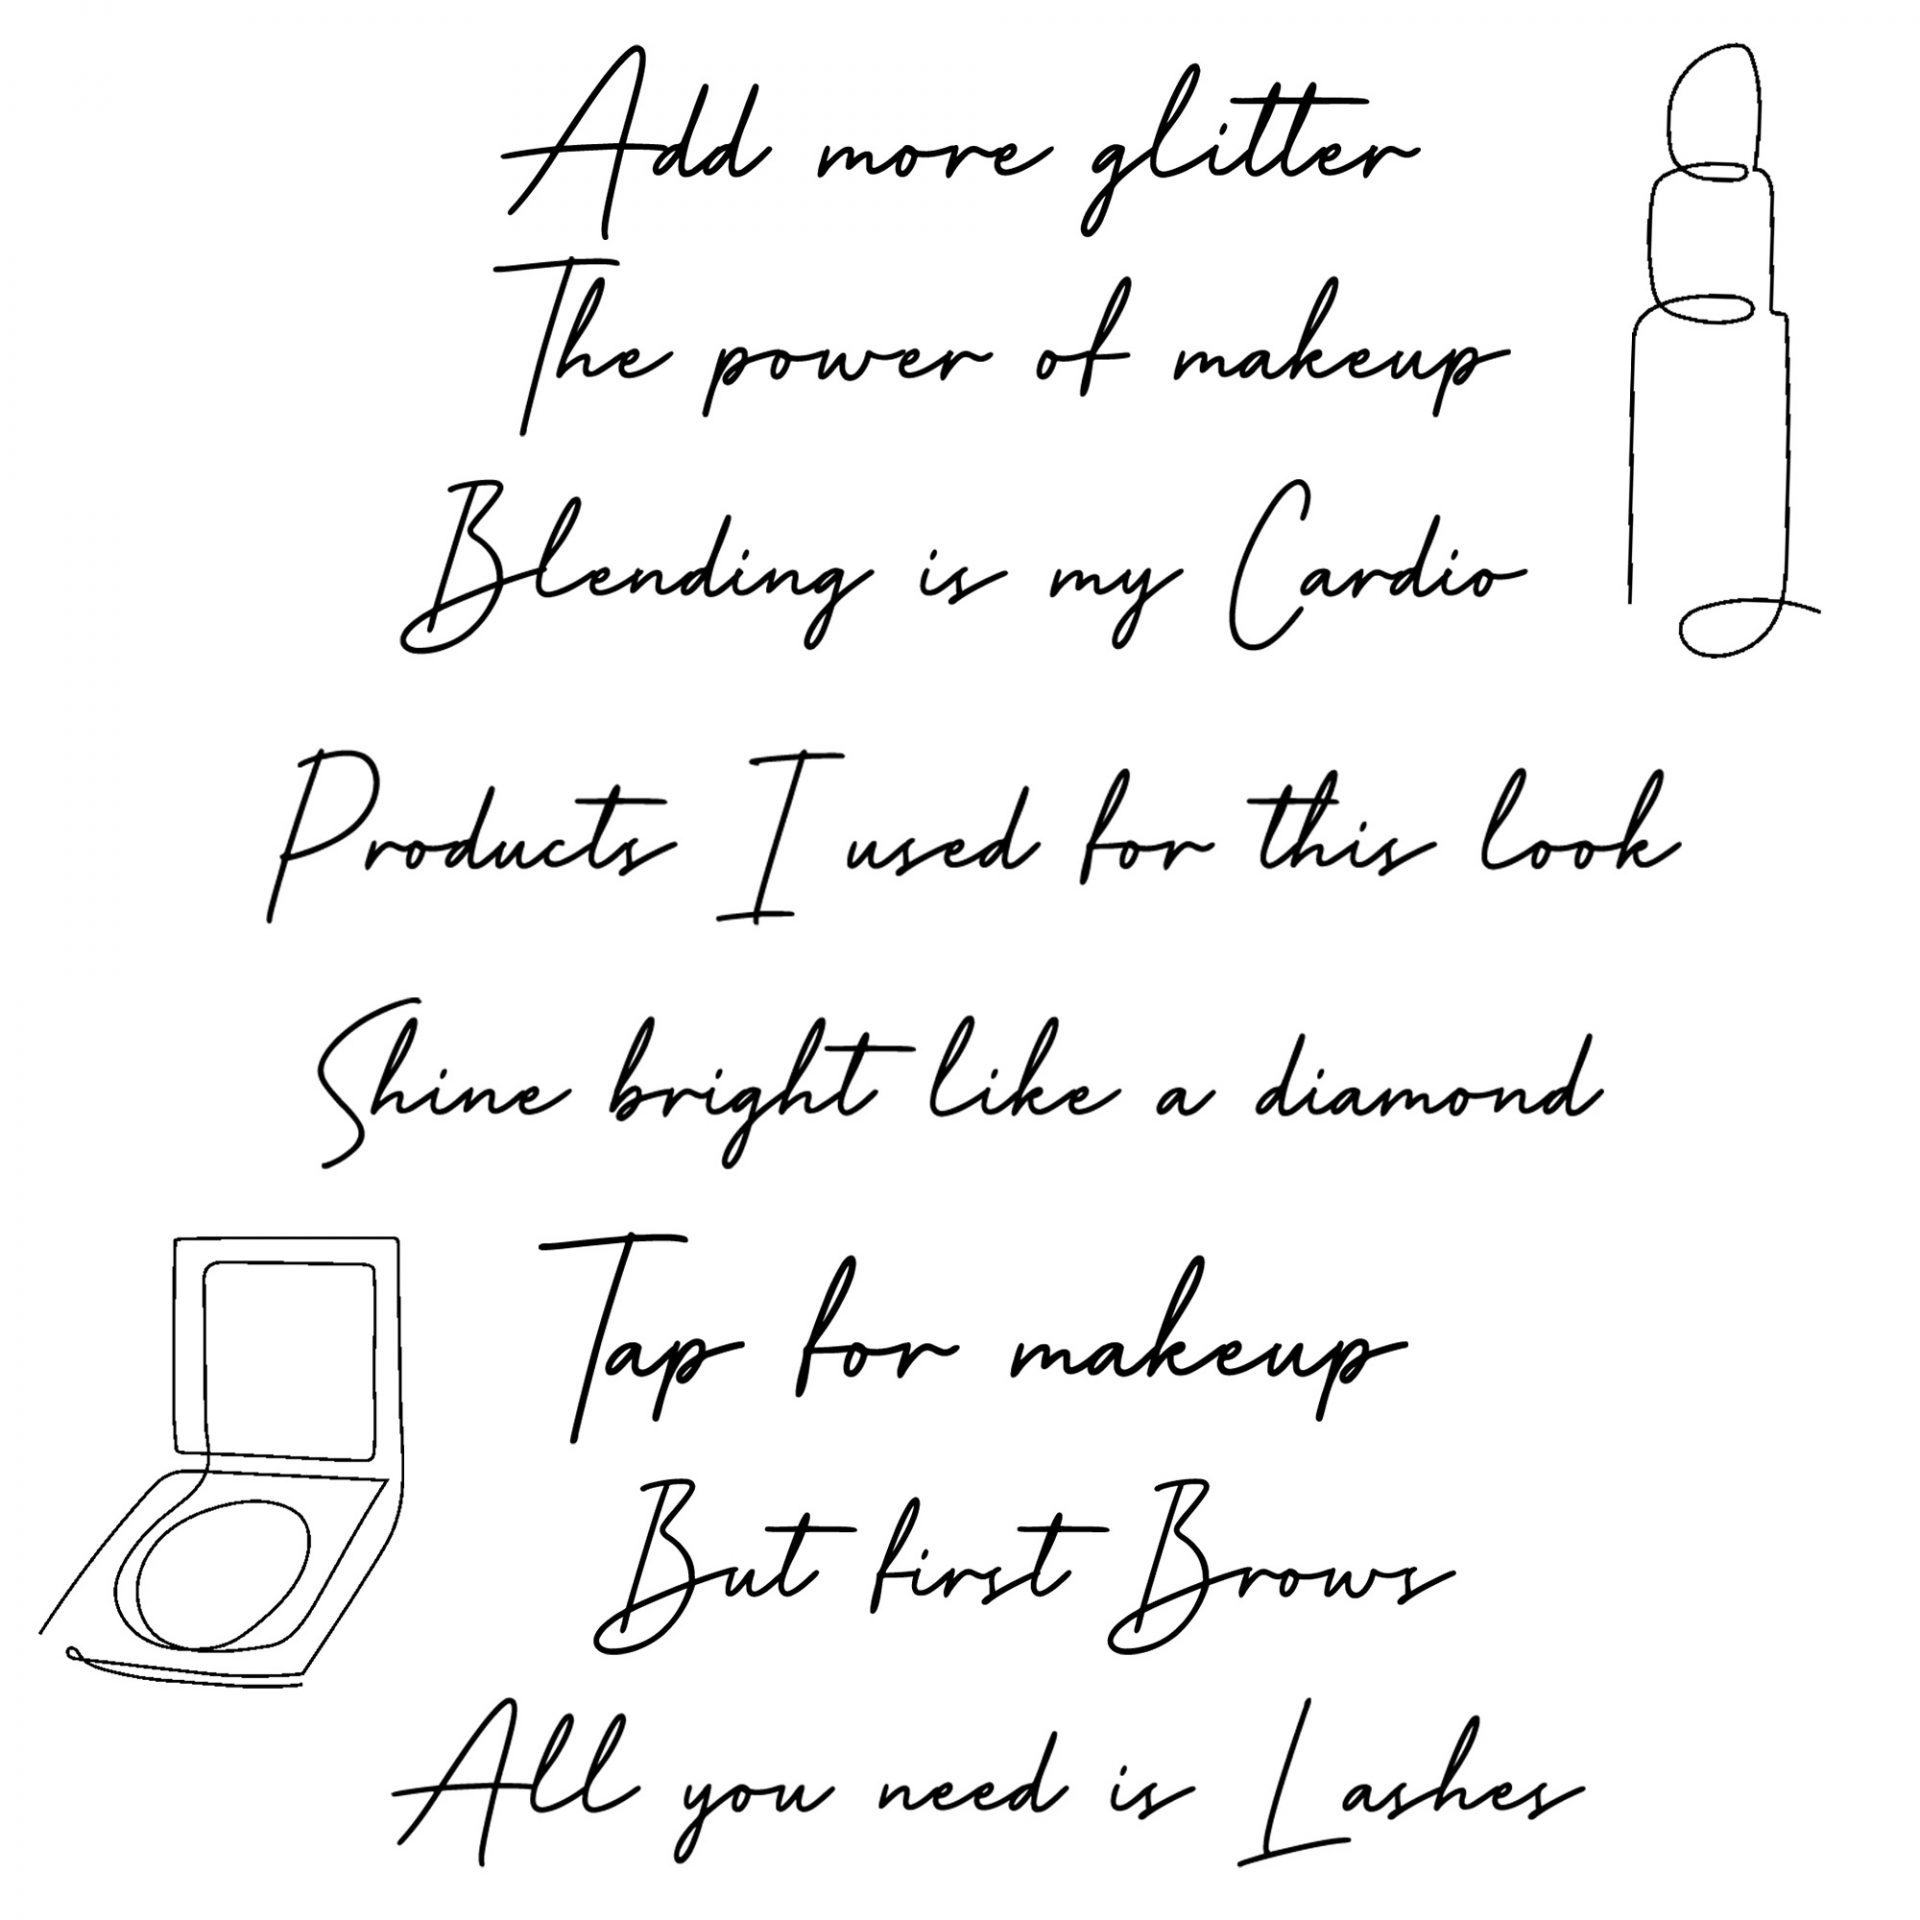 Add more glitter
The power of makeup
Blending is my Cardio
Products I used for this look
Shine bright like a diamond
Tap for makeup
But first Brows
All you need is Lashes